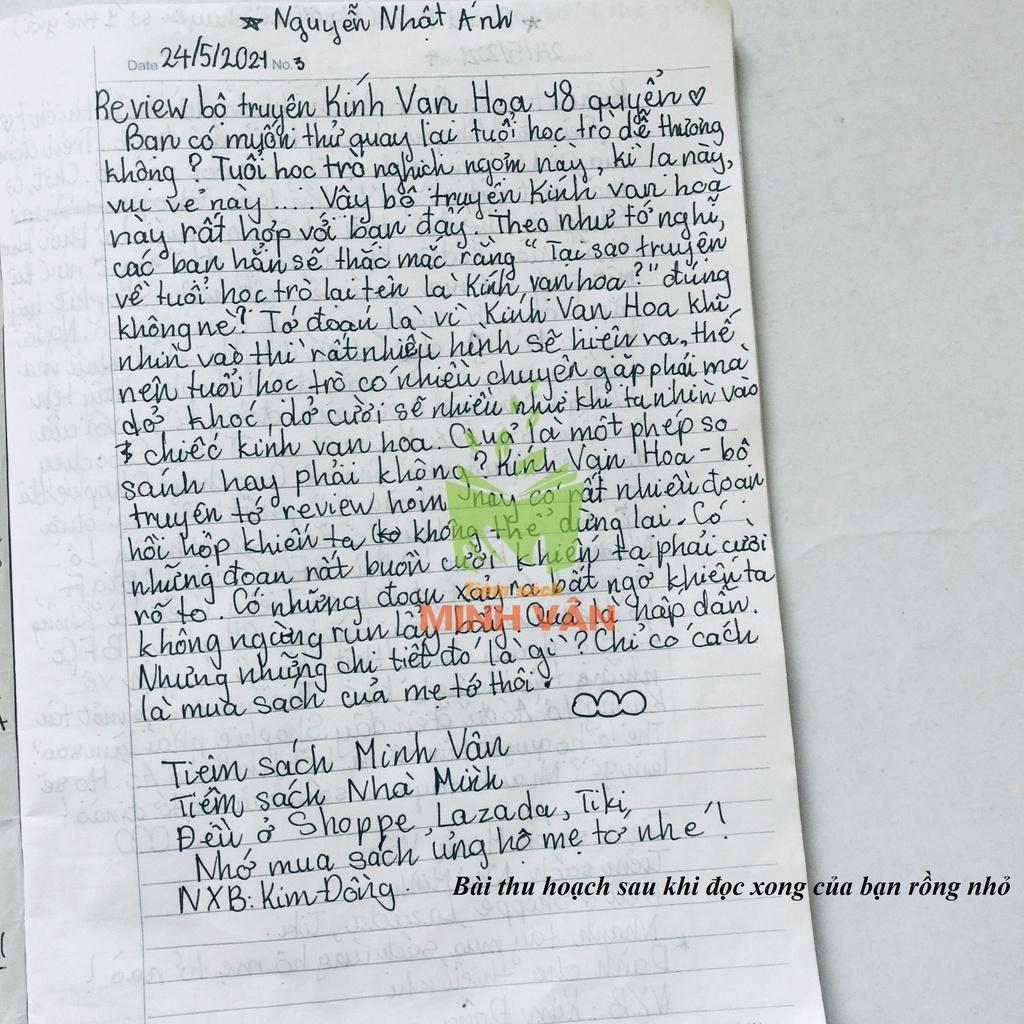 ★ Nguyễn Nhật Ánh ★
Date 24/5/2021 No.3
Review bộ truyện Kính Vạn Hoa 18 quyển ♡
Bạn có muốn thử quay lại tuổi học trò dễ thương
không? Tuổi học trò nghịch ngợm này, kì lạ này,
vui vẻ này .... Vậy bộ truyện Kính vạn hoa
này rất hợp với bạn đấy. Theo như tớ nghĩ,
các bạn hẳn sẽ thắc mắc rằng "Tại sao truyện
về tuổi học trò lại tên là Kính vạn hoa?" đúng
không nè? Tớ đoán là vì Kính Vạn Hoa khi
nhìn vào thì rất nhiều hình sẽ hiện ra, thế
nên tuổi học trò có nhiều chuyện gặp phải mà
dở khóc, dở cười sẽ nhiều như khi ta nhìn vào
chiếc kính vạn hoa. Quả là một phép so
sánh hay phải không? Kính Vạn Hoa - bộ
truyện tớ review hôm nay có rất nhiều đoạn
hồi hộp khiến ta (ko không thể dừng lại. Có
những đoạn rất buồn cười khiến ta phải cười
rõ to. Có những đoạn xảy ra bất ngờ khiến ta
không ngừng run lẩy bẩy. Quả là hấp dẫn.
Nhưng những chi tiết đó là gì? Chỉ có cách
là mua sách của mẹ tớ thôi!
Tiệm sách Minh Vân
Tiệm sách Nhà Mình
Đều ở Shoppe, Lazada, Tiki,
Nhớ mua sách ủng hộ mẹ tớ nhé!
NXB: Kim Đồng.
Tiệm sách
MINH VÂN
Bài thu hoạch sau khi đọc xong của bạn rồng nhỏ